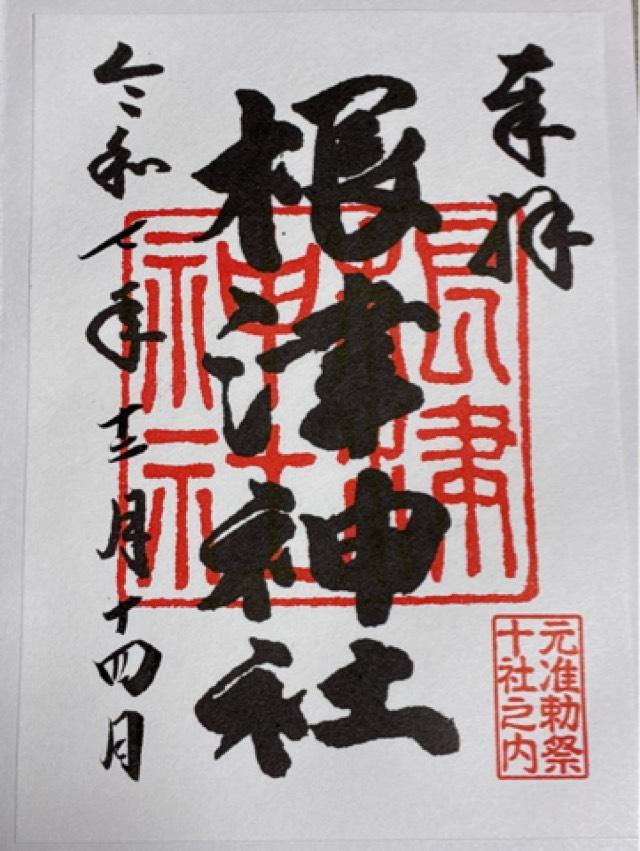 奉拝
根津神社
令和七年十二月十四日
根津
神社
元准勅祭
十社之内